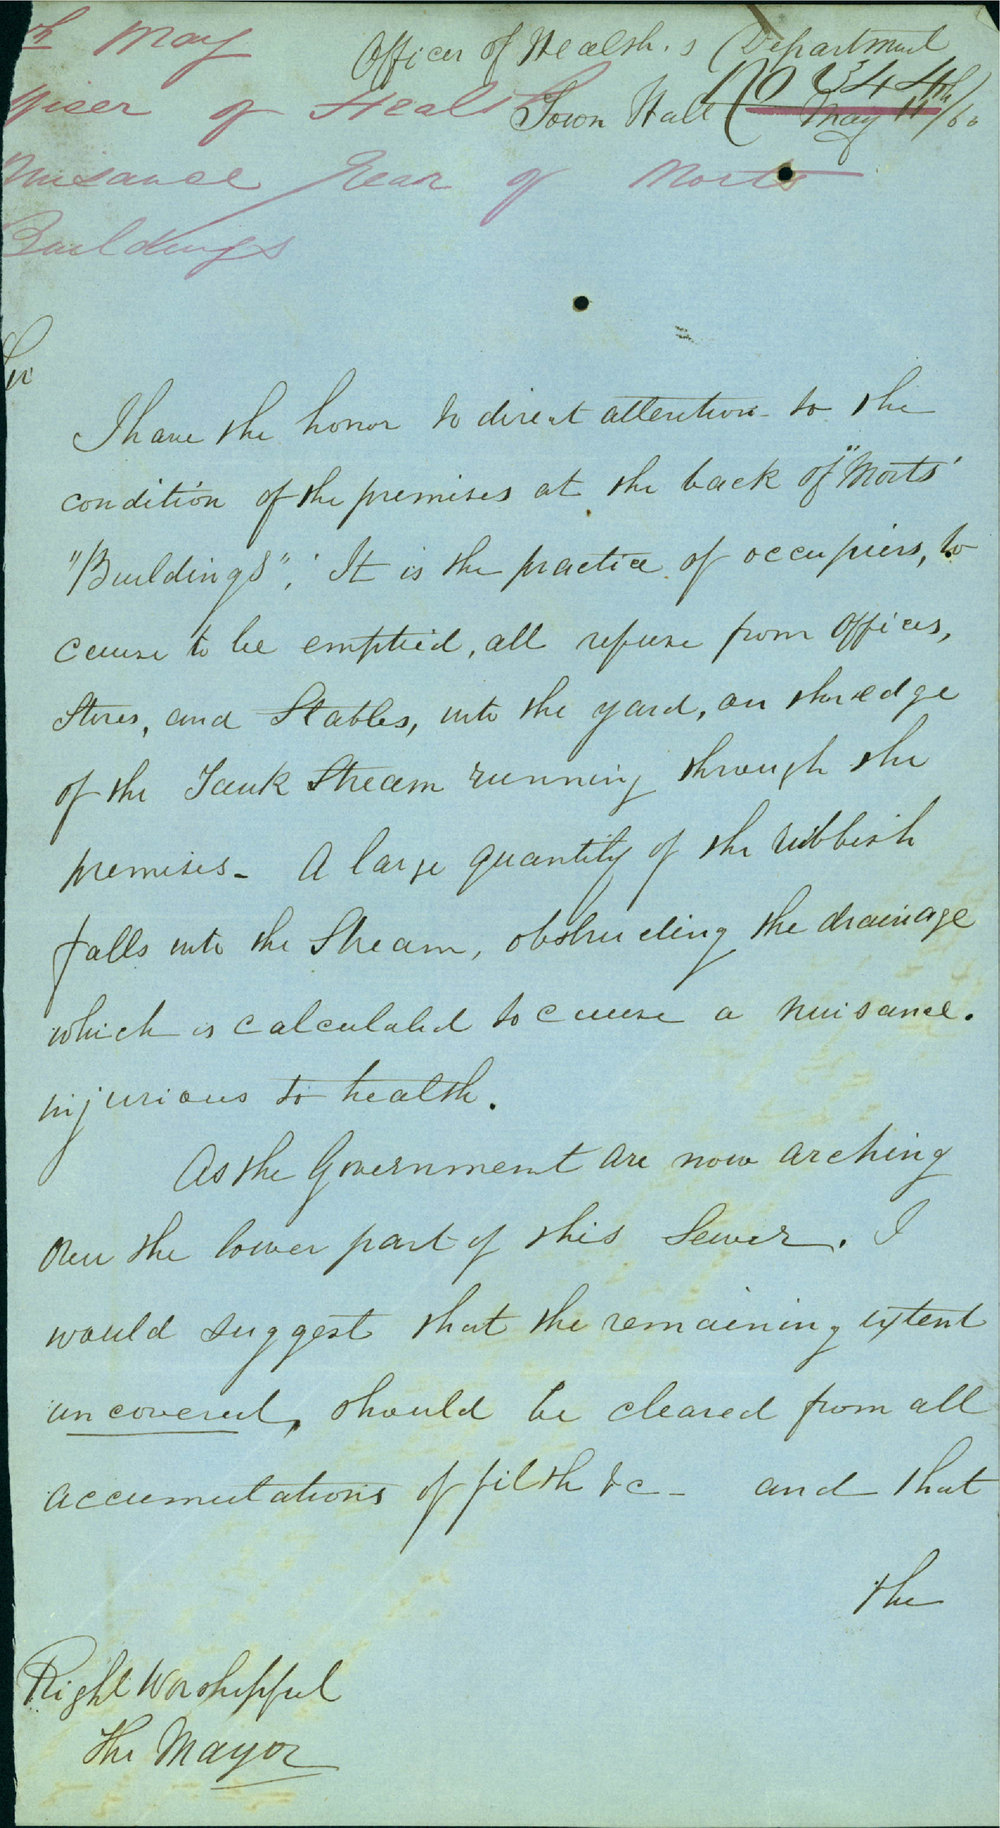 May
Officer of Health's Department
No 344
of Health
Town Hall
May 11th/60
Nuisance Rear of Morts
Buildings
Sir
I have the honor to direct attention to the
condition of the premises at the back of "Morts'
"Buildings"; It is the practice of occupiers, to
cause to be emptied, all refuse from Offices,
Stores, and Stables, into the yard, on the edge
of the Tank Stream running through the
premises - A large quantity of the rubbish
falls into the Stream, obstructing the drainage
which is calculated to cause a nuisance.
injurious to health.
As the Government are now arching
over the lower part of this Sewer. I
would suggest that the remaining extent
uncovered, should be cleared from all
accumutations of filth &c - and that
the
Right Worshipful
The Mayor